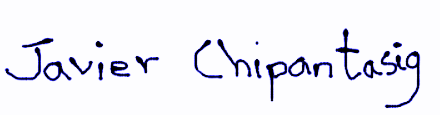 Javier Chipantasig